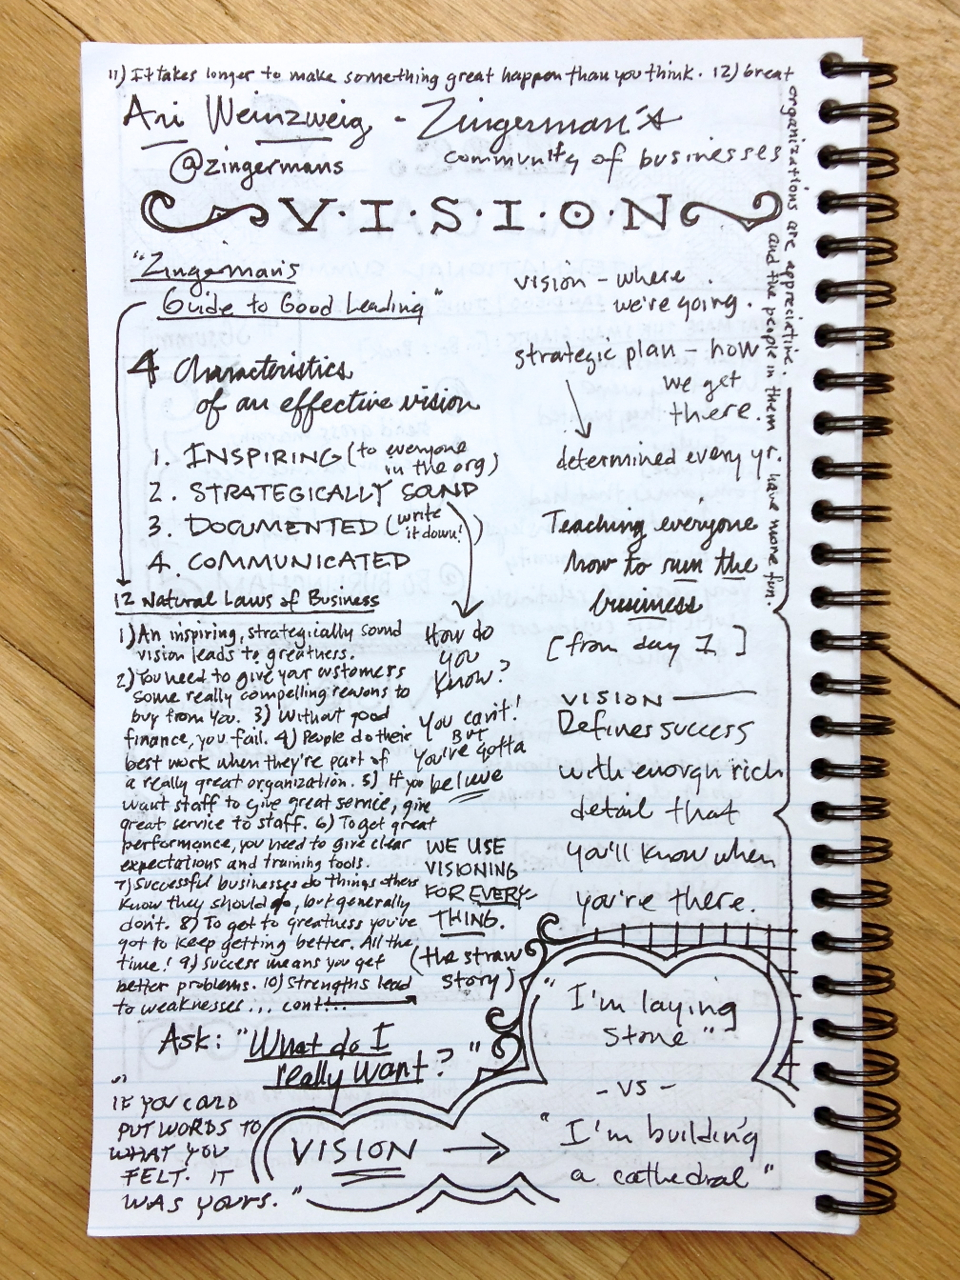 11) It takes longer to make something great happen than you think. 12) Great
organizations are appreciative,
and the people in them have more fun.
Ari Weinzweig - Zingerman's
@zingermans
community of businesses
V·I·S·I·O·N
"Zingerman's
Guide to Good Leading"
4 Characteristics
of an effective vision
1. INSPIRING (to everyone
in the org)
2. STRATEGICALLY SOUND
3. DOCUMENTED (write
it down!)
4. COMMUNICATED
How do
you
know?
You can't!
BUT
you've gotta
believe
12 Natural Laws of Business
1) An inspiring, strategically sound
vision leads to greatness.
2) You need to give your customers
some really compelling reasons to
buy from you. 3) Without good
finance, you fail. 4) People do their
best work when they're part of
a really great organization. 5) If you
want staff to give great service, give
great service to staff. 6) To get great
performance, you need to give clear
expectations and training tools.
7) Successful businesses do things others
know they should do, but generally
don't. 8) To get to greatness you've
got to keep getting better. All the
time! 9) Success means you get
better problems. 10) Strengths lead
to weaknesses... cont...
WE USE
VISIONING
FOR EVERY-
THING.
(the straw
story)
Ask: "What do I
really want?"
"IF YOU COULD
PUT WORDS TO
WHAT YOU
FELT. IT
WAS YOURS."
vision - where
we're going.
strategic plan - how
we get
there.
determined every yr.
Teaching everyone
how to run the
business
[from day 1]
VISION
Defines success
with enough rich
detail that
you'll know when
you're there.
"I'm laying
stone"
- VS -
VISION → "I'm building
a cathedral"